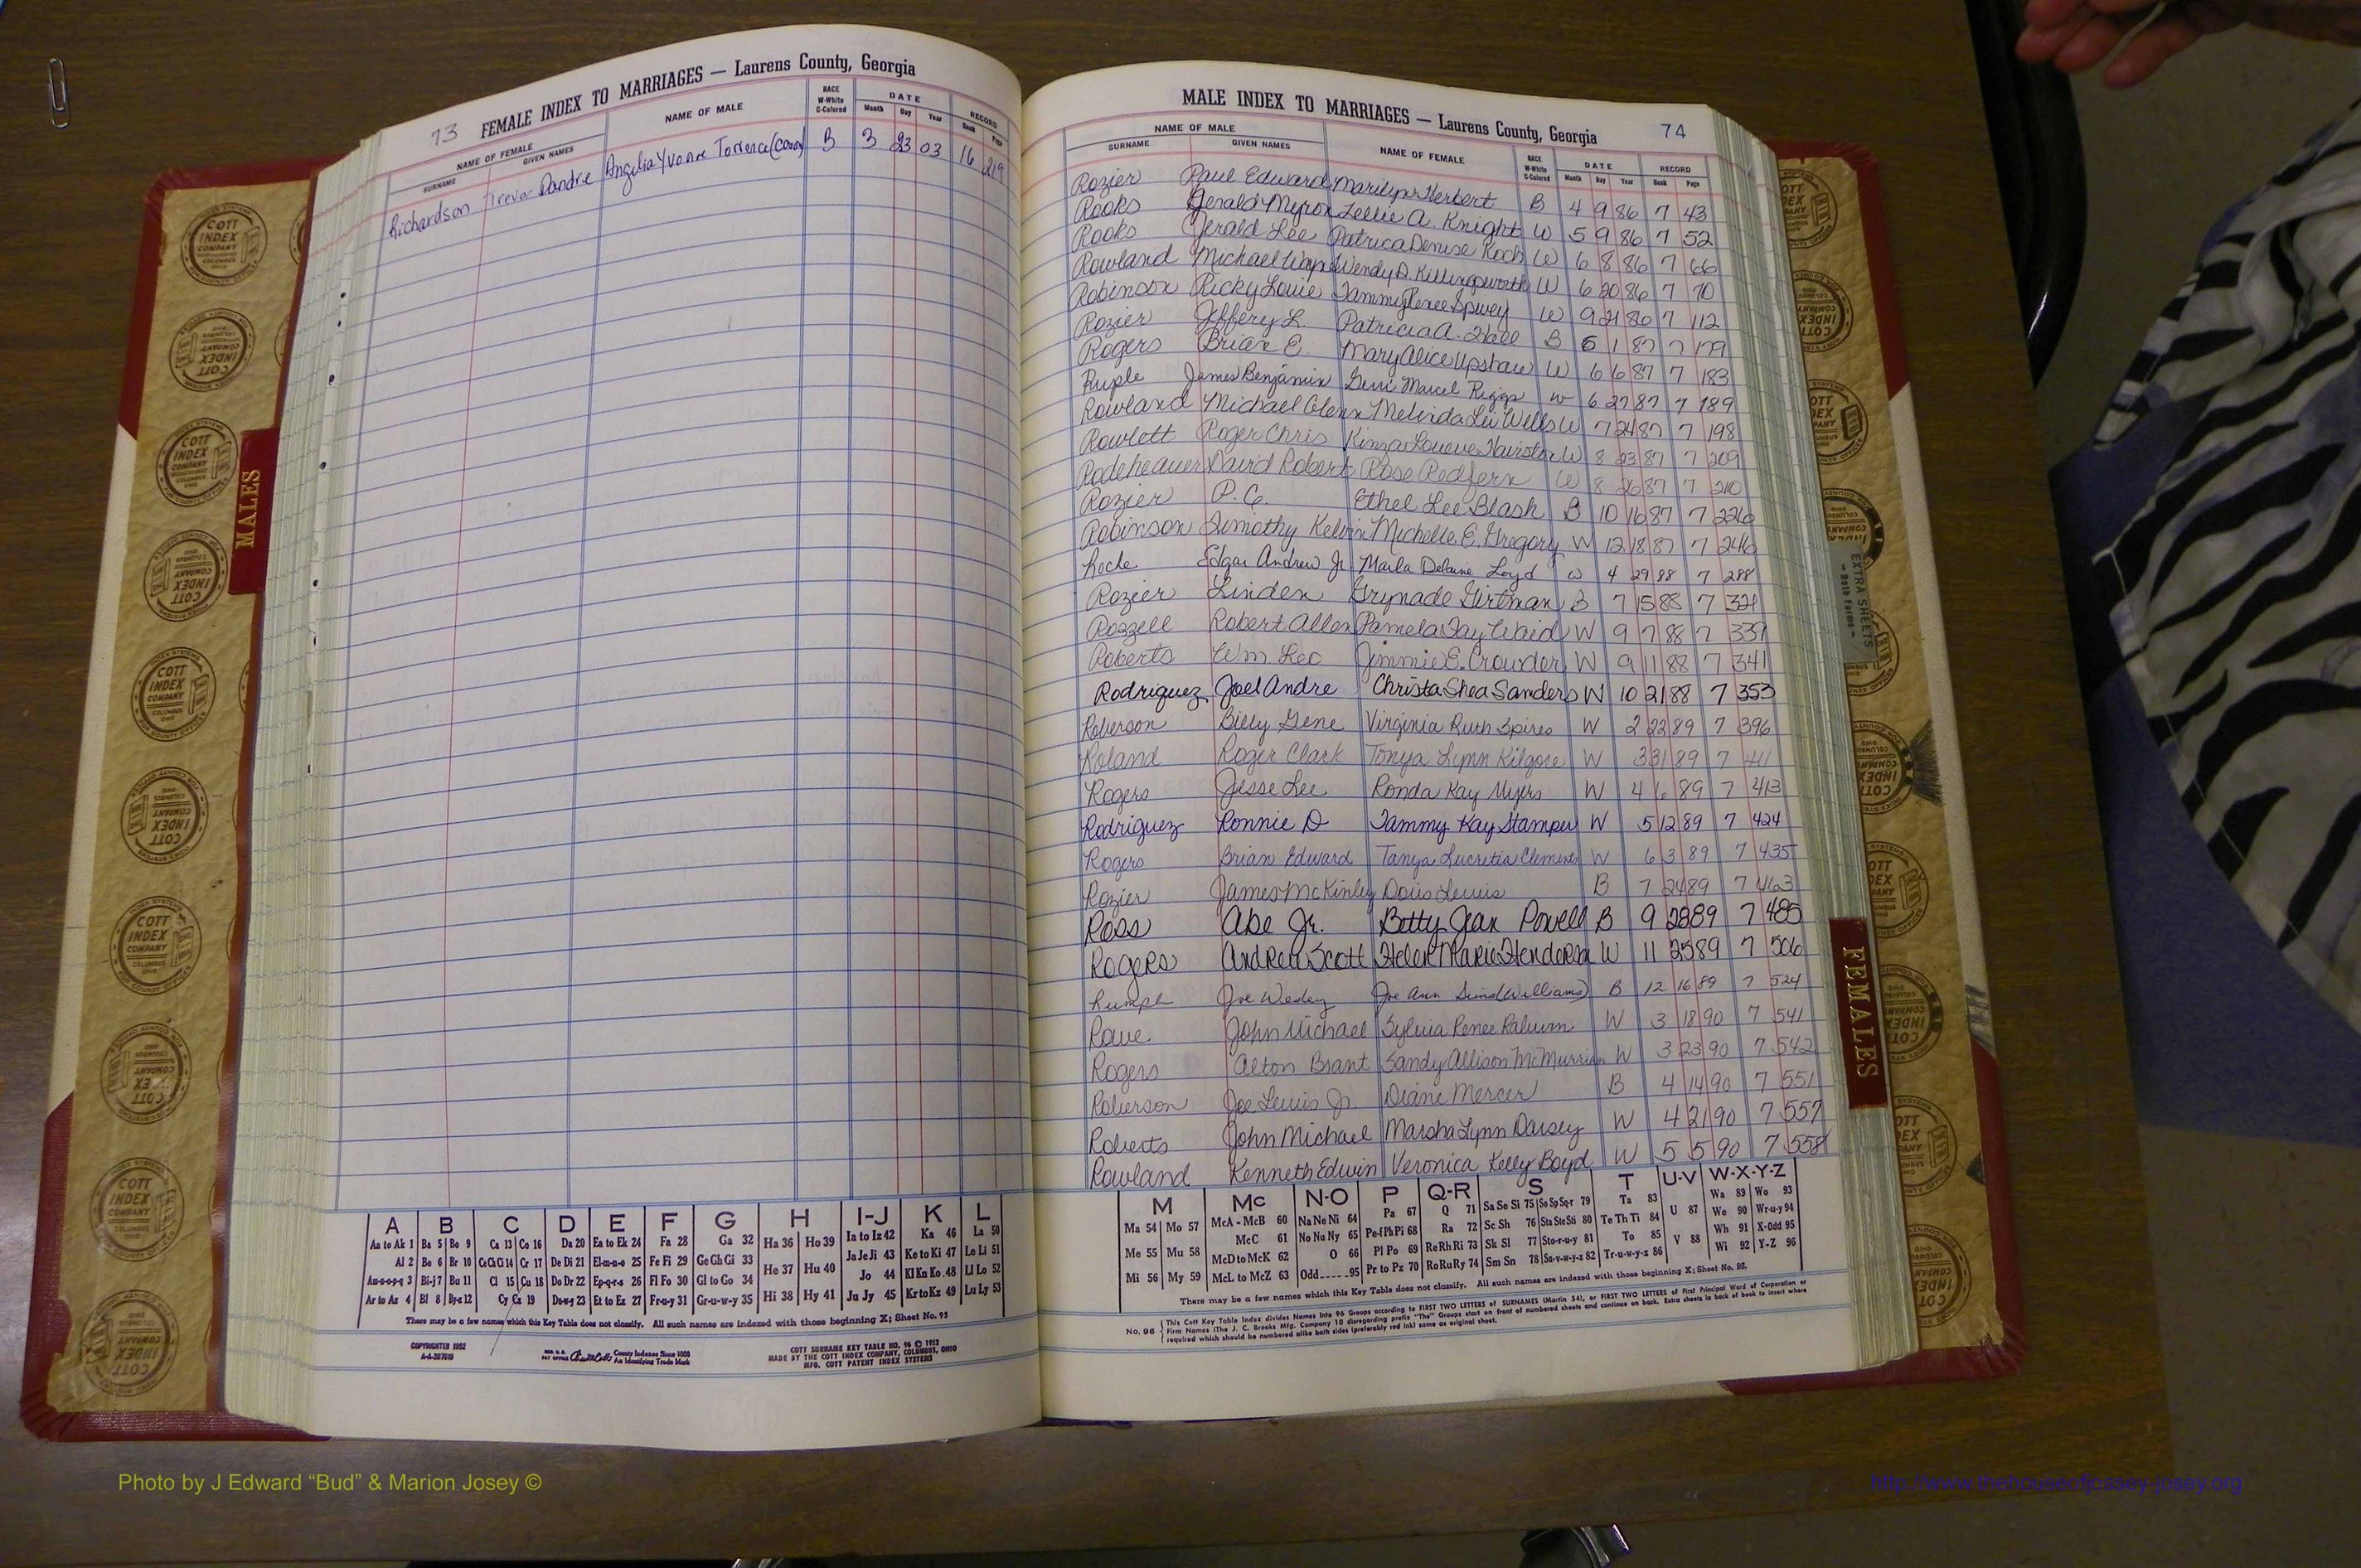 73 FEMALE INDEX TO MARRIAGES — Laurens County, Georgia
NAME OF FEMALE NAME OF MALE RACE W-White C-Colored DATE RECORD
SURNAME GIVEN NAMES Month Day Year Book Page
Richardson Trevor Dandre Angelia Yvonne Torrence (Coney) B 3 23 03 16 219
MALE INDEX TO MARRIAGES — Laurens County, Georgia 74
NAME OF MALE NAME OF FEMALE RACE W-White C-Colored DATE RECORD
SURNAME GIVEN NAMES Month Day Year Book Page
Rozier Paul Edward Marilyn Herbert B 4 9 86 7 43
Rooks Gerald Myron Lellie A. Knight W 5 9 86 7 52
Rooks Jerald Lee Patrica Denise Koch W 6 8 86 7 66
Rowland Michael Wayne Wendy D. Killingsworth W 6 20 86 7 70
Robinson Ricky Louie Tammy Renee Spivey W 9 21 86 7 112
Rozier Jeffery L. Patricia A. Hall B 6 1 87 7 179
Rogers Brian E. Mary Alice Upshaw W 6 6 87 7 183
Ruple James Benjamin Gerri Marcel Riggs W 6 27 87 7 189
Rowland Michael Glenn Melinda Lei Wells W 7 24 87 7 198
Rowlett Roger Chris Kinza Hairston W 8 23 87 7 209
Rodeheaver David Robert Rose Redfern W 8 26 87 7 210
Rozier P. C. Ethel Lee Blash B 10 16 87 7 226
Robinson Timothy Kelvin Michelle E. Gregory W 12 18 87 7 246
Edgar Andrew Jr Marla Delaine Loyd W 4 29 88 7 288
Rozier Linden Grynade Girtman B 7 15 88 7 321
Rozzell Robert Allen Pamela Fay Waid W 9 7 88 7 339
Roberts Wm. Leo Jimmie E. Crowder W 9 11 88 7 341
Rodriguez Joel Andre Christa Shea Sanders W 10 21 88 7 353
Roberson Billy Gene Virginia Ruth Spires W 2 22 89 7 396
Roland Roger Clark Tonya Lynn Kilgore W 3 31 89 7 411
Rogers Jesse Lee Ronda Kay Myers W 4 6 89 7 413
Rodriguez Ronnie D Tammy Kay Stamper W 5 12 89 7 424
Rogers Brian Edward Tanya Lucretia Clements W 6 3 89 7 435
Rozier James McKinley Doris Lewis B 7 24 89 7 463
Ross Abe Jr. Betty Jean Powell B 9 28 89 7 485
Rogers Andrew Scott Helen Marie Henderson W 11 25 89 7 506
Rumph Joe Wesley Joe Ann (Williams) B 12 16 89 7 524
Rowe John Michael Sylvia Renee W 3 18 90 7 541
Rogers Alton Brant Sandy Allison McMurrian W 3 23 90 7 542
Roberson Joe Lewis Jr. Diane Mercer B 4 14 90 7 551
Roberts John Michael Marsha Lynn Darsey W 4 21 90 7 557
Rowland Kenneth Edwin Veronica Kelly Boyd W 5 5 90 7 558
A B C D E F G H I-J K L
Aa to Ak 1 Ba 5 Bo 9 Ca 13 Co 16 Da 20 Ea to Ek 24 Fa 28 Ga 32 Ha 36 Ho 39 Ia to Iz 42 Ka 46 La 50
Al 2 Be 6 Br 10 Ce Ch Ci 14 Cr 17 De Di 21 El-m-n-o 25 Fe Fi 29 Ge Gh Gi 33 He 37 Hu 40 Ja Je Ji 43 Ke to Ki 47 Le Li 51
Am-n-o-p-q 3 Bi-j 7 Bu 11 Cl 15 Cu 18 Do Dr 22 Ep-q-r-s 26 Fl Fo 30 Gl to Go 34 Jo 44 Kl Kn Ko 48 Ll Lo 52
Ar to Az 4 Bl 8 By-z 12 Cy Cz 19 Du-w-y 23 Et to Ez 27 Fr-u-y 31 Gr-u-w-y 35 Hi 38 Hy 41 Ju Jy 45 Kr to Kz 49 Lu Ly 53
There may be a few names which this Key Table does not classify. All such names are indexed with those beginning X; Sheet No. 95
COPYRIGHTED 1952
County Indexes Since 1888
An Identifying Trade Mark
COTT SURNAME KEY TABLE NO. 96 © 1952
MADE BY THE COTT INDEX COMPANY, COLUMBUS, OHIO
MFG. COTT PATENT INDEX SYSTEMS
M Mc N-O P Q-R S T U-V W-X-Y-Z
Ma 54 Mo 57 McA - McB 60 Na Ne Ni 64 Pa 67 Q 71 Sa Se Si 75 So Sp Sq-r 79 Ta 83 U 87 Wa 89 Wo 93
Me 55 Mu 58 McC 61 No Nu Ny 65 Pe-f Ph Pi 68 Ra 72 Sc Sh 76 Sta Ste Sti 80 Te Th Ti 84 We 90 Wr-u-y 94
McD to McK 62 O 66 Pl Po 69 Re Rh Ri 73 Sk Sl 77 Sto-r-u-y 81 To 85 V 88 Wh 91 X-Odd 95
Mi 56 My 59 McL to McZ 63 Odd 95 Pr to Pz 70 Ro Ru Ry 74 Sm Sn 78 Su-v-w-y-z 82 Tr-u-w-y-z 86 Wi 92 Y-Z 96
There may be a few names which this Key Table does not classify. All such names are indexed with those beginning X; Sheet No. 95.
No. 96 This Cott Key Table Index divides Names into 96 Groups according to FIRST TWO LETTERS of SURNAMES (Martin 54), or FIRST TWO LETTERS of First Principal Word of Corporation or
Firm Names (The J. C. Brooks Mfg. Company 10 disregarding prefix "The" Groups start on front of numbered sheets and continue on back. Extra sheets in back of book to insert where
required which should be numbered alike both sides (preferably red ink) same as original sheet.
MALES
FEMALES
EXTRA SHEETS
— Both Forms —
COTT INDEX COMPANY COLUMBUS OHIO
Photo by J Edward “Bud” & Marion Josey ©